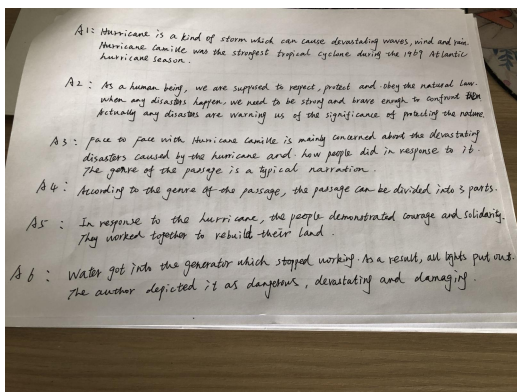 A1: Hurricane is a kind of storm which can cause devastating waves, wind and rain.
Hurricane Camille was the strongest tropical cyclone during the 1969 Atlantic
hurricane season.
A2: As a human being, we are supposed to respect, protect and obey the natural law.
when any disasters happen, we need to be strong and brave enough to confront
Actually any disasters are warning us of the significance of protecting the nature.
A3: Face to face with Hurricane Camille is mainly concerned about the devastating
disasters caused by the hurricane and how people did in response to it.
The genre of the passage is a typical narration.
A4: According to the genre of the passage, the passage can be divided into 3 parts.
A5: In response to the hurricane, the people demonstrated courage and solidarity.
They worked together to rebuild their land.
A6: Water got into the generator which stopped working. As a result, all lights put out.
The author depicted it as dangerous, devastating and damaging.